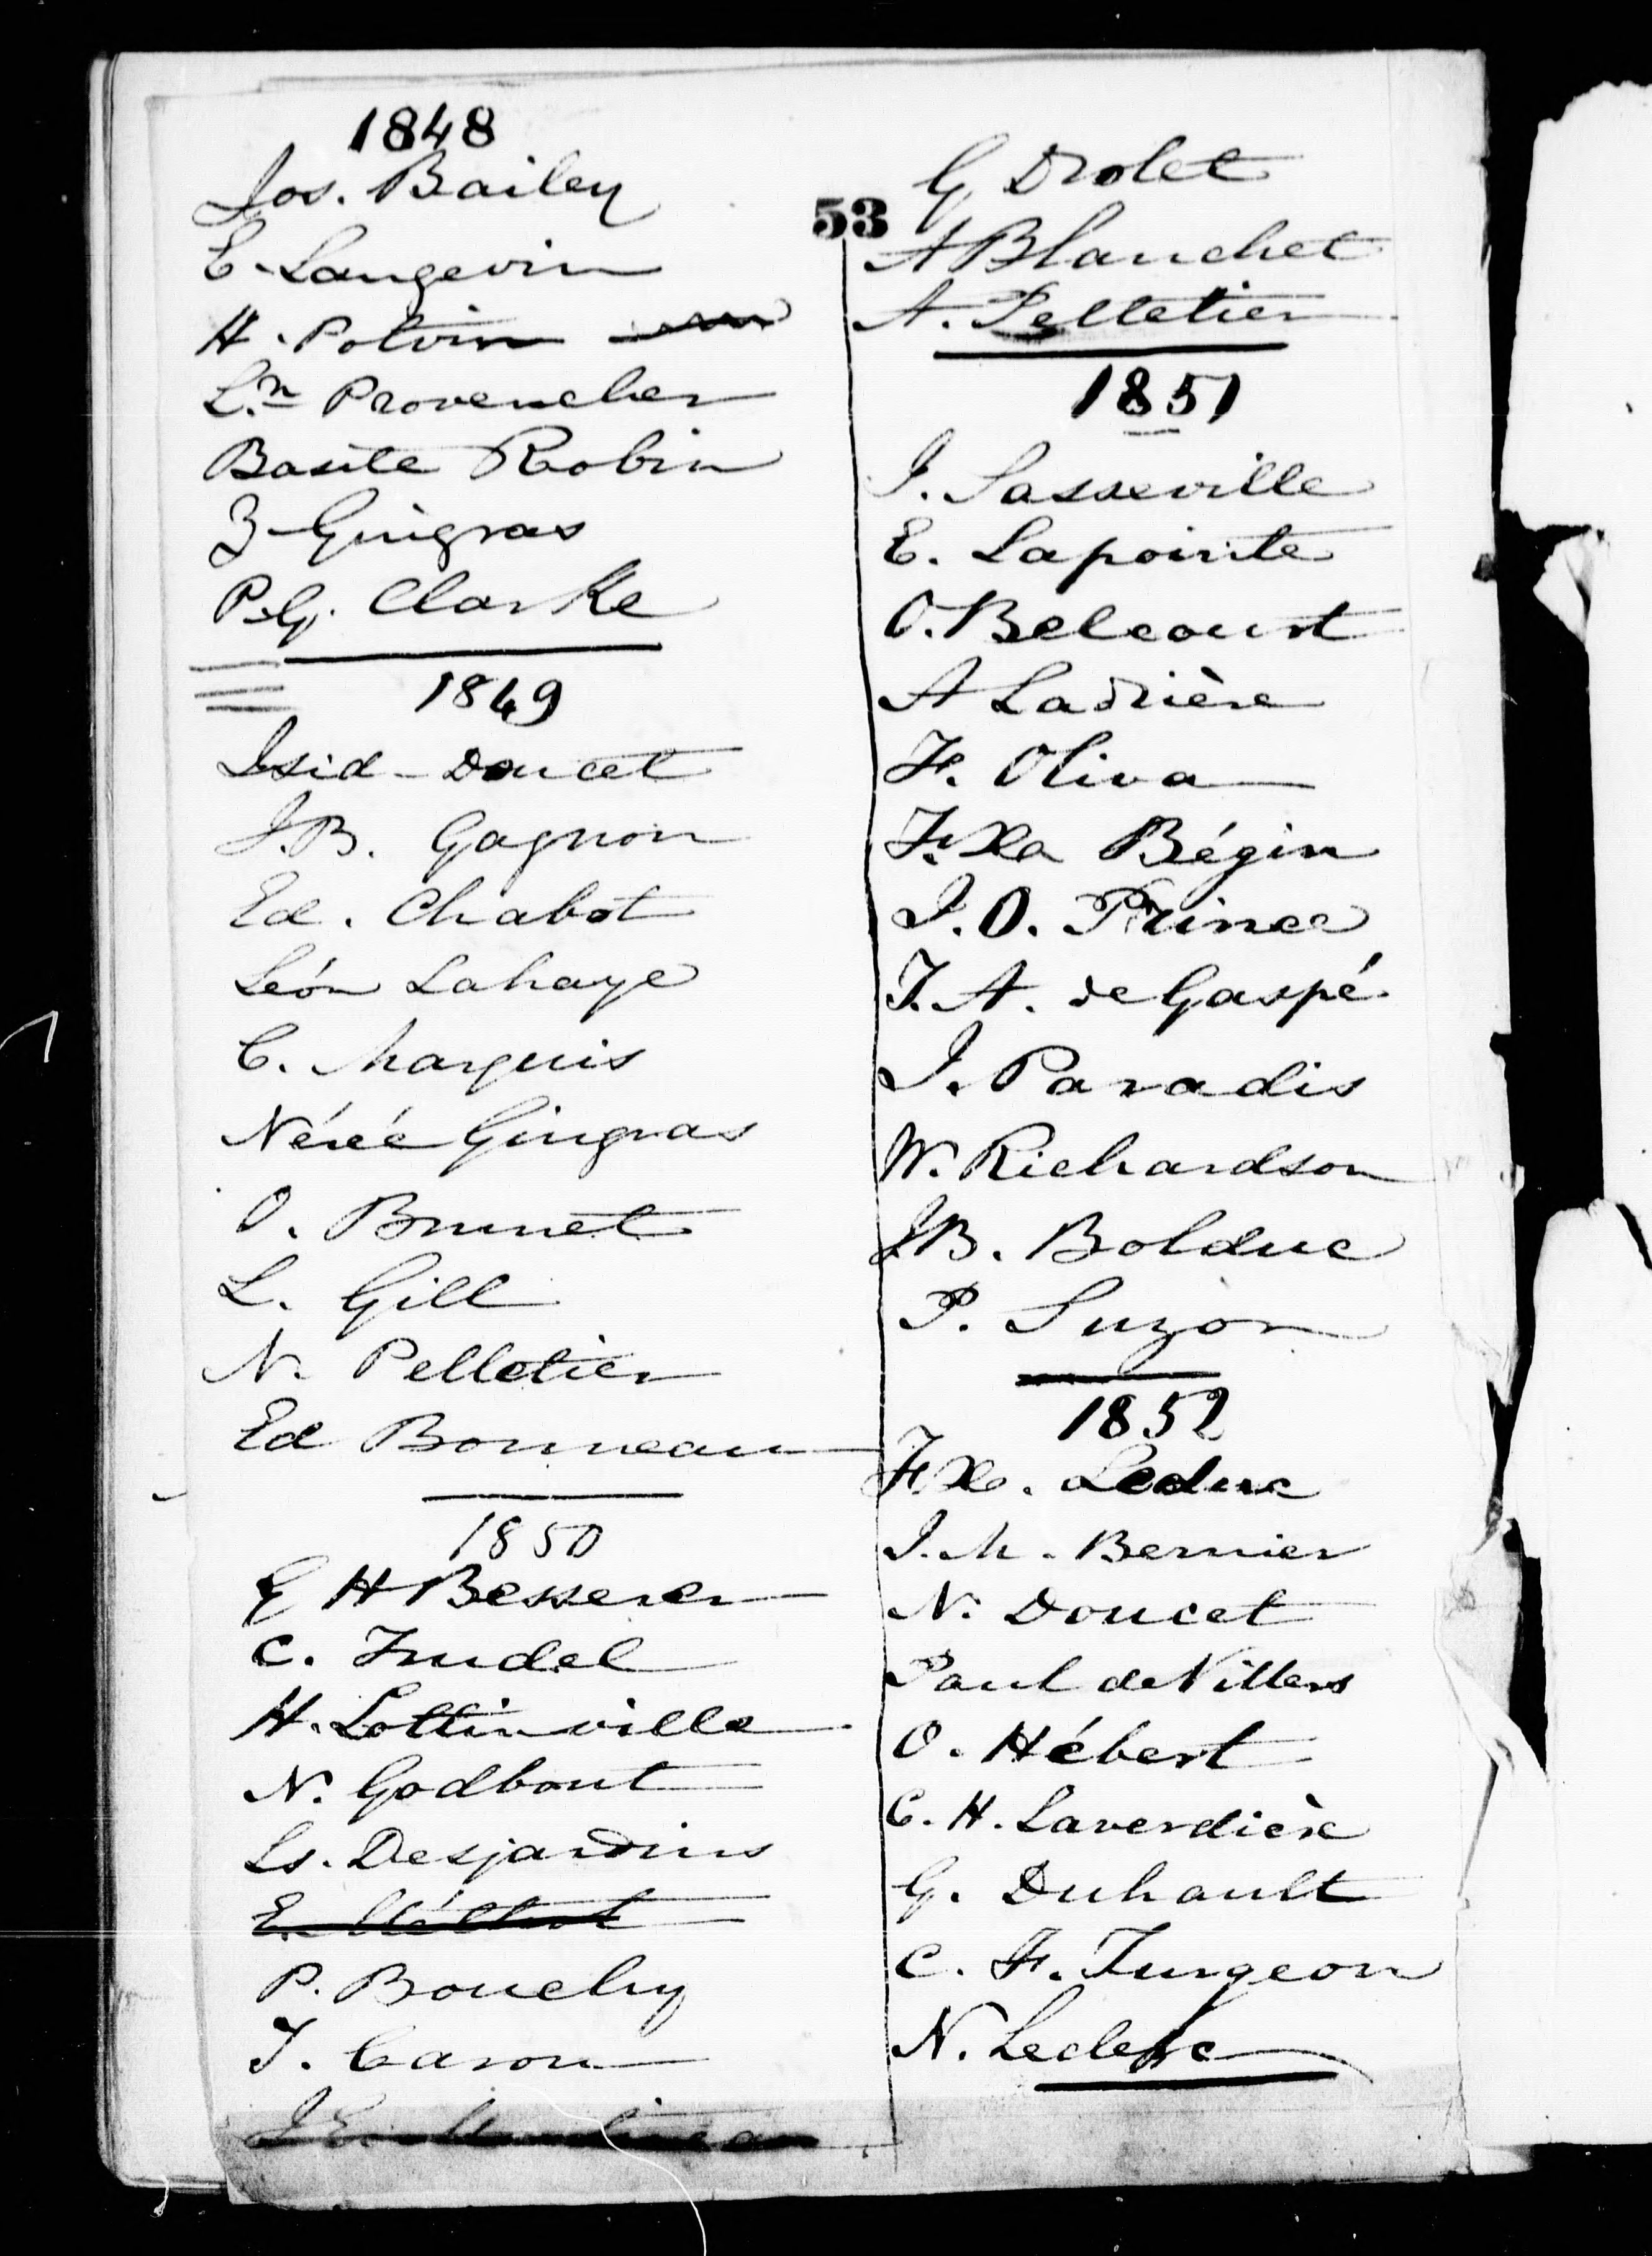 1848
Jos. Bailey
E. Langevin
H. Potvin
L.n Provencher
Basile Robin
Z Gingras
P. G. Clarke
1849
Isid - Doucet
J.B. Gagnon
Ed. Chabot
Léon Lahaye
C. Marquis
Nérée Gingras
O. Brunet
L. Gill
N. Pelletier
Ed Bonneau
1850
E H Besserer
C. Trudel
H. Lottinville
N. Godbout
Ls. Desjardins
E. Méthot
P. Bouchy
T. Caron
53
G Drolet
A Blanchet
A. Pelletier
1851
J. Sasseville
E. Lapointe
O. Belcourt
A Ladrière
F. Oliva
F. Xa Bégin
J. O. Prince
T. A. de Gaspé
J. Paradis
W. Richardson
JB. Bolduc
P. Suzor
1852
F. X. Leduc
J. M. Bernier
N. Doucet
Paul de Villers
O. Hébert
C. H. Laverdière
G. Duhault
C. F. Turgeon
N. Leclerc